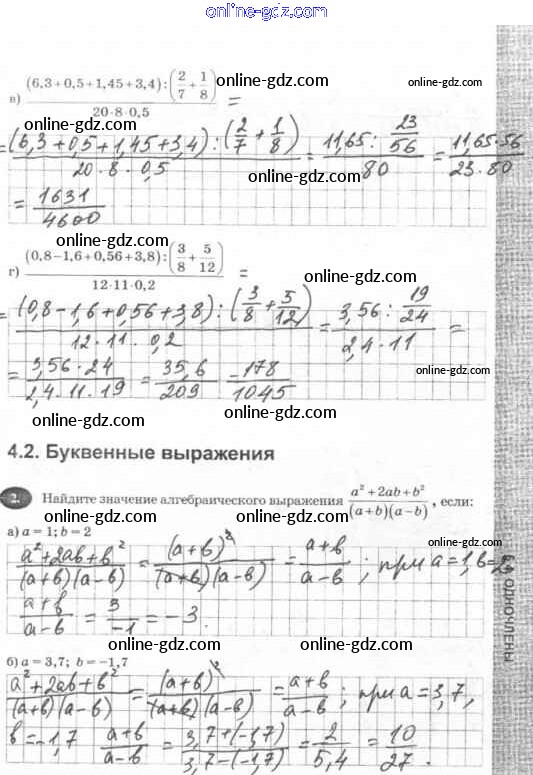 online-gdz.com
в) ((6,3+0,5+1,45+3,4):(2/7+1/8))/(20·8·0,5) =
online-gdz.com online-gdz.com
online-gdz.com
= ((6,3+0,5+1,45+3,4):(2/7+1/8))/(20·8·0,5) = (11,65:23/56)/80 = (11,65·56)/(23·80)
online-gdz.com
= 1631/4600
online-gdz.com
online-gdz.com
г) ((0,8−1,6+0,56+3,8):(3/8+5/12))/(12·11·0,2) =
online-gdz.com
= ((0,8−1,6+0,56+3,8):(3/8+5/12))/(12·11·0,2) = (3,56:19/24)/(2,4·11) =
online-gdz.com
= (3,56·24)/(2,4·11·19) = 35,6/209 = 178/1045
online-gdz.com
online-gdz.com online-gdz.com
4.2. Буквенные выражения
online-gdz.com
2. Найдите значение алгебраического выражения (a²+2ab+b²)/((a+b)(a−b)), если:
online-gdz.com online-gdz.com
а) a = 1; b = 2
(a²+2ab+b²)/((a+b)(a−b)) = (a+b)²/((a+b)(a−b)) = (a+b)/(a−b); при a=1, b=2
online-gdz.com
(a+b)/(a−b) = 3/−1 = −3.
online-gdz.com
online-gdz.com
б) a = 3,7; b = −1,7
online-gdz.com
(a²+2ab+b²)/((a+b)(a−b)) = (a+b)²/((a+b)(a−b)) = (a+b)/(a−b); при a=3,7,
online-gdz.com
b=−1,7 (a+b)/(a−b) = (3,7+(−1,7))/(3,7−(−1,7)) = 2/5,4 = 10/27.
online-gdz.com
§ 4 ОДНОЧЛЕНЫ